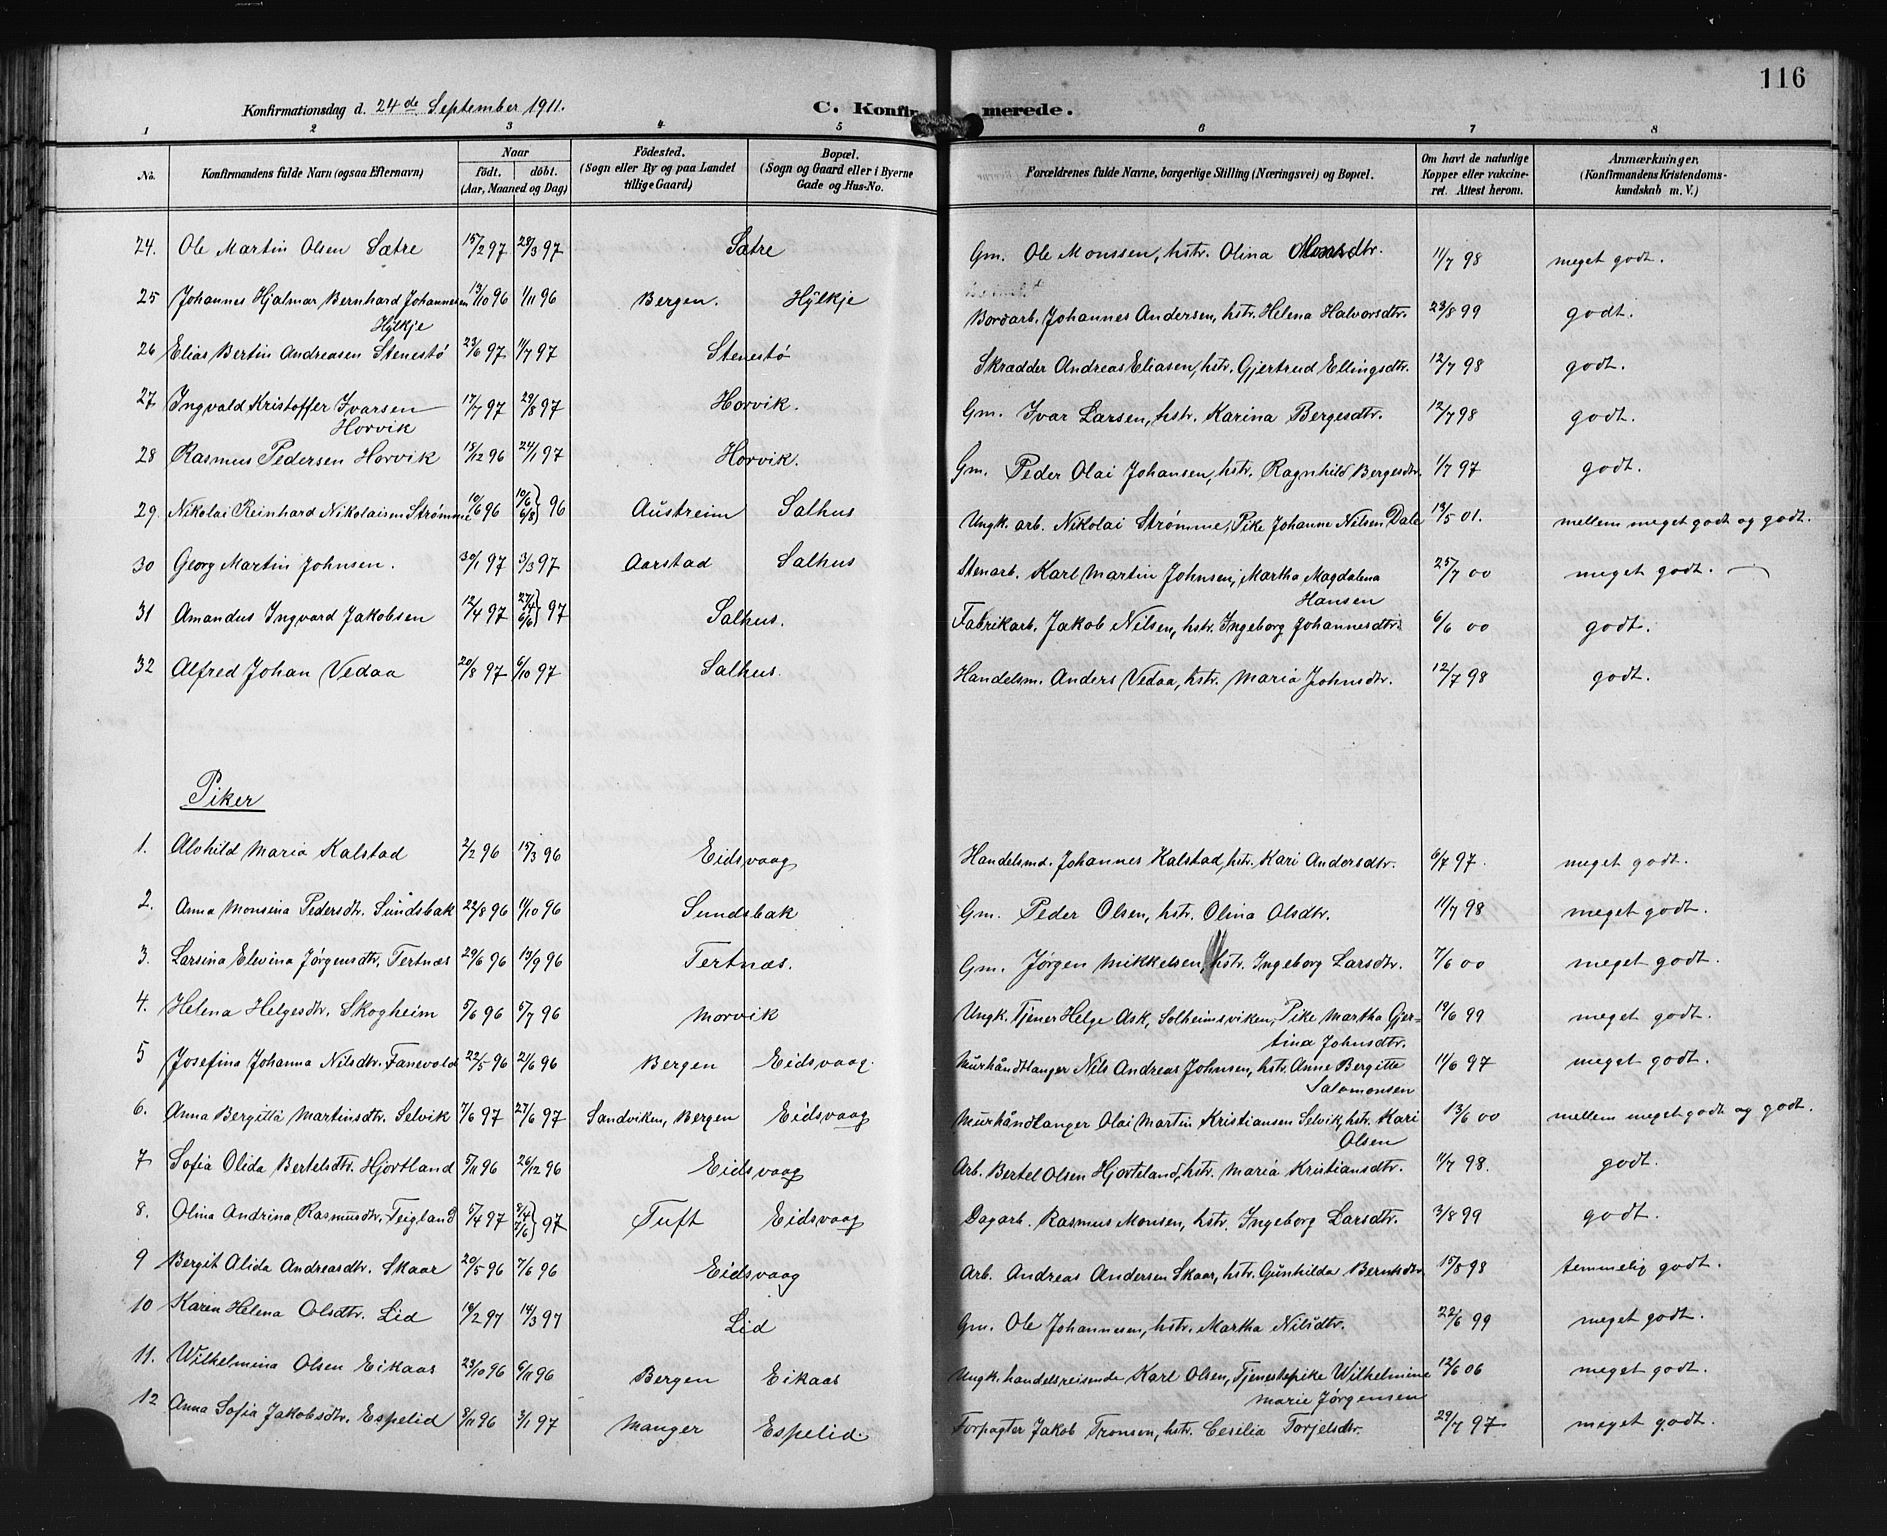 116
Konfirmationsdag d. 24de September 1911. C. Konfirmerede.
1 2 3 4 5 6 7 8
No. Konfirmandens fulde Navn (ogsaa Efternavn) Naar født. døbt. (Aar, Maaned og Dag) Fødested. (Sogn eller By og paa Landet tillige Gaard) Bopæl. (Sogn og Gaard eller i Byerne Gade og Hus-No. Forældrenes fulde Navne, borgerlige Stilling (Næringsvei) og Bopæl. Om havt de naturlige Kopper eller vakcineret. Attest herom. Anmærkninger. (Konfirmandens Kristendomskundskab m. V.)
24. Ole Martin Olsen Sætre 15/2 97 28/3 97 Sætre Gm. Ole Monssen, hstr. Olina Monsdtr. 11/7 98 meget godt.
25 Johannes Hjalmar Bernhard Johannesen Hylkje 13/10 96 1/11 96 Bergen. Hylkje Bordarb. Johannes Andersen, hstr. Helena Halvorsdtr. 23/8 99 godt.
26 Elias Bertin Andreasen Stenestø 23/6 97 11/7 97 Stenestø Skrædder Andreas Eliasen, hstr. Gjertrud Ellingsdtr. 12/7 98 godt.
27 Ingvald Kristoffer Ivarsen Horvik 17/7 97 29/8 97 Horvik. Gm. Ivar Larsen, hstr. Karina Bergesdtr. 12/7 98 godt.
28 Rasmus Pedersen Horvik 18/12 96 24/1 97 Horvik. Gm. Peder Olai Johansen, hstr. Ragnhild Bergesdtr. 1/7 97 godt.
29. Nikolai Reinhard Nikolaisen Strømme 10/6 96 10/6 6/8} 96 Austreim Salhus Ungk. arb. Nikolai Strømme, Pike Johanne Nilsen Dale 13/5 01. mellem meget godt og godt.
30 Georg Martin Johnsen. 30/1 97 3/3 97 Aarstad Salhus Stenarb. Karl Martin Johnsen, Martha Magdalena Hansen 25/7 00 meget godt.
31 Amandus Ingvard Jakobsen 12/4 97 27/4 6/6} 97 Salhus. Fabrikarb. Jakob Nilsen, hstr. Ingeborg Johannesdtr. 6/6 00 godt.
32 Alfred Johan Vedaa 20/8 97 6/10 97 Salhus. Handelsm. Anders Vedaa, hstr. Maria Johnsdtr. 12/7 98 godt.
Piker
1. Alvhild Maria Kalstad 2/2 96 15/3 96 Eidsvaag Handelsmd. Johannes Kalstad, hstr. Kari Andersdtr. 6/7 97. meget godt.
2. Anna Monsina Pedersdtr. Sundsbak 22/8 96 11/10 96 Sundsbak Gm. Peder Olsen, hstr. Olina Olsdtr. 11/7 98 meget godt.
3. Larsina Elevina Jørgensdtr. Tertnæs 29/6 96 13/9 96 Tertnæs. Gm. Jørgen Mikkelsen, hstr. Ingeborg Larsdtr. 7/6 00 meget godt.
4. Helena Helgesdtr. Skogheim 5/6 96 5/7 96 Morvik Ungk. Tjener Helge Ask, Solheimsviken, Pike Martha Gjertina Johnsdtr. 19/6 99 meget godt.
5 Josefina Johanna Nilsdtr. Fanevold 22/5 96 21/6 96 Bergen Eidsvaag. Murhåndtlanger Nils Andreas Johnsen, hstr. Anne Bergitte Salomonsen 11/6 97 meget godt.
6. Anna Bergitta Martinsdtr. Selvik 7/6 97 27/6 97 Sandviken, Bergen Eidsvaag Murhåndtlanger Olai Martin Kristiansen Selvik, hstr. Kari Olsen 13/6 00 mellem meget godt og godt.
7 Sofia Olida Bertelsdtr. Hjortland 5/11 96 26/12 96 Eidsvaag Arb. Bertel Olsen Hjorteland, hstr. Maria Kristiansdtr. 11/7 98. godt.
8. Olina Andrina Rasmusdtr. Teigland 5/4 97 8/4 7/6} 97 Tuft Eidsvaag Dagarb. Rasmus Monsen, hstr. Ingeborg Larsdtr. 3/8 99 godt.
9 Bergit Alida Andreasdtr. Skaar 20/5 96 7/6 96 Eidsvaag Arb. Andreas Andersen Skaar, hstr. Gunhilda Berntsdtr 15/8 98 temmelig godt.
10 Karen Helena Olsdtr. Lid 16/2 97 14/3 97 Lid Gm. Ole Johannesen, hstr. Martha Nilsdtr. 22/6 99 meget godt.
11. Wilhelmina Olsen Eikaas 23/10 96 6/11 96 Bergen Eikaas Ungk. handelsreisende Karl Olsen, Tjenestepike Wilhelmine Marie Jørgensen 12/6 06 meget godt.
12 Anna Sofia Jakobsdtr. Espelid 8/11 96 3/1 97 Manger Espelid. Forpagter Jakob Tronsen, hstr. Cesilia Torjelsdtr. 29/7 97 meget godt.